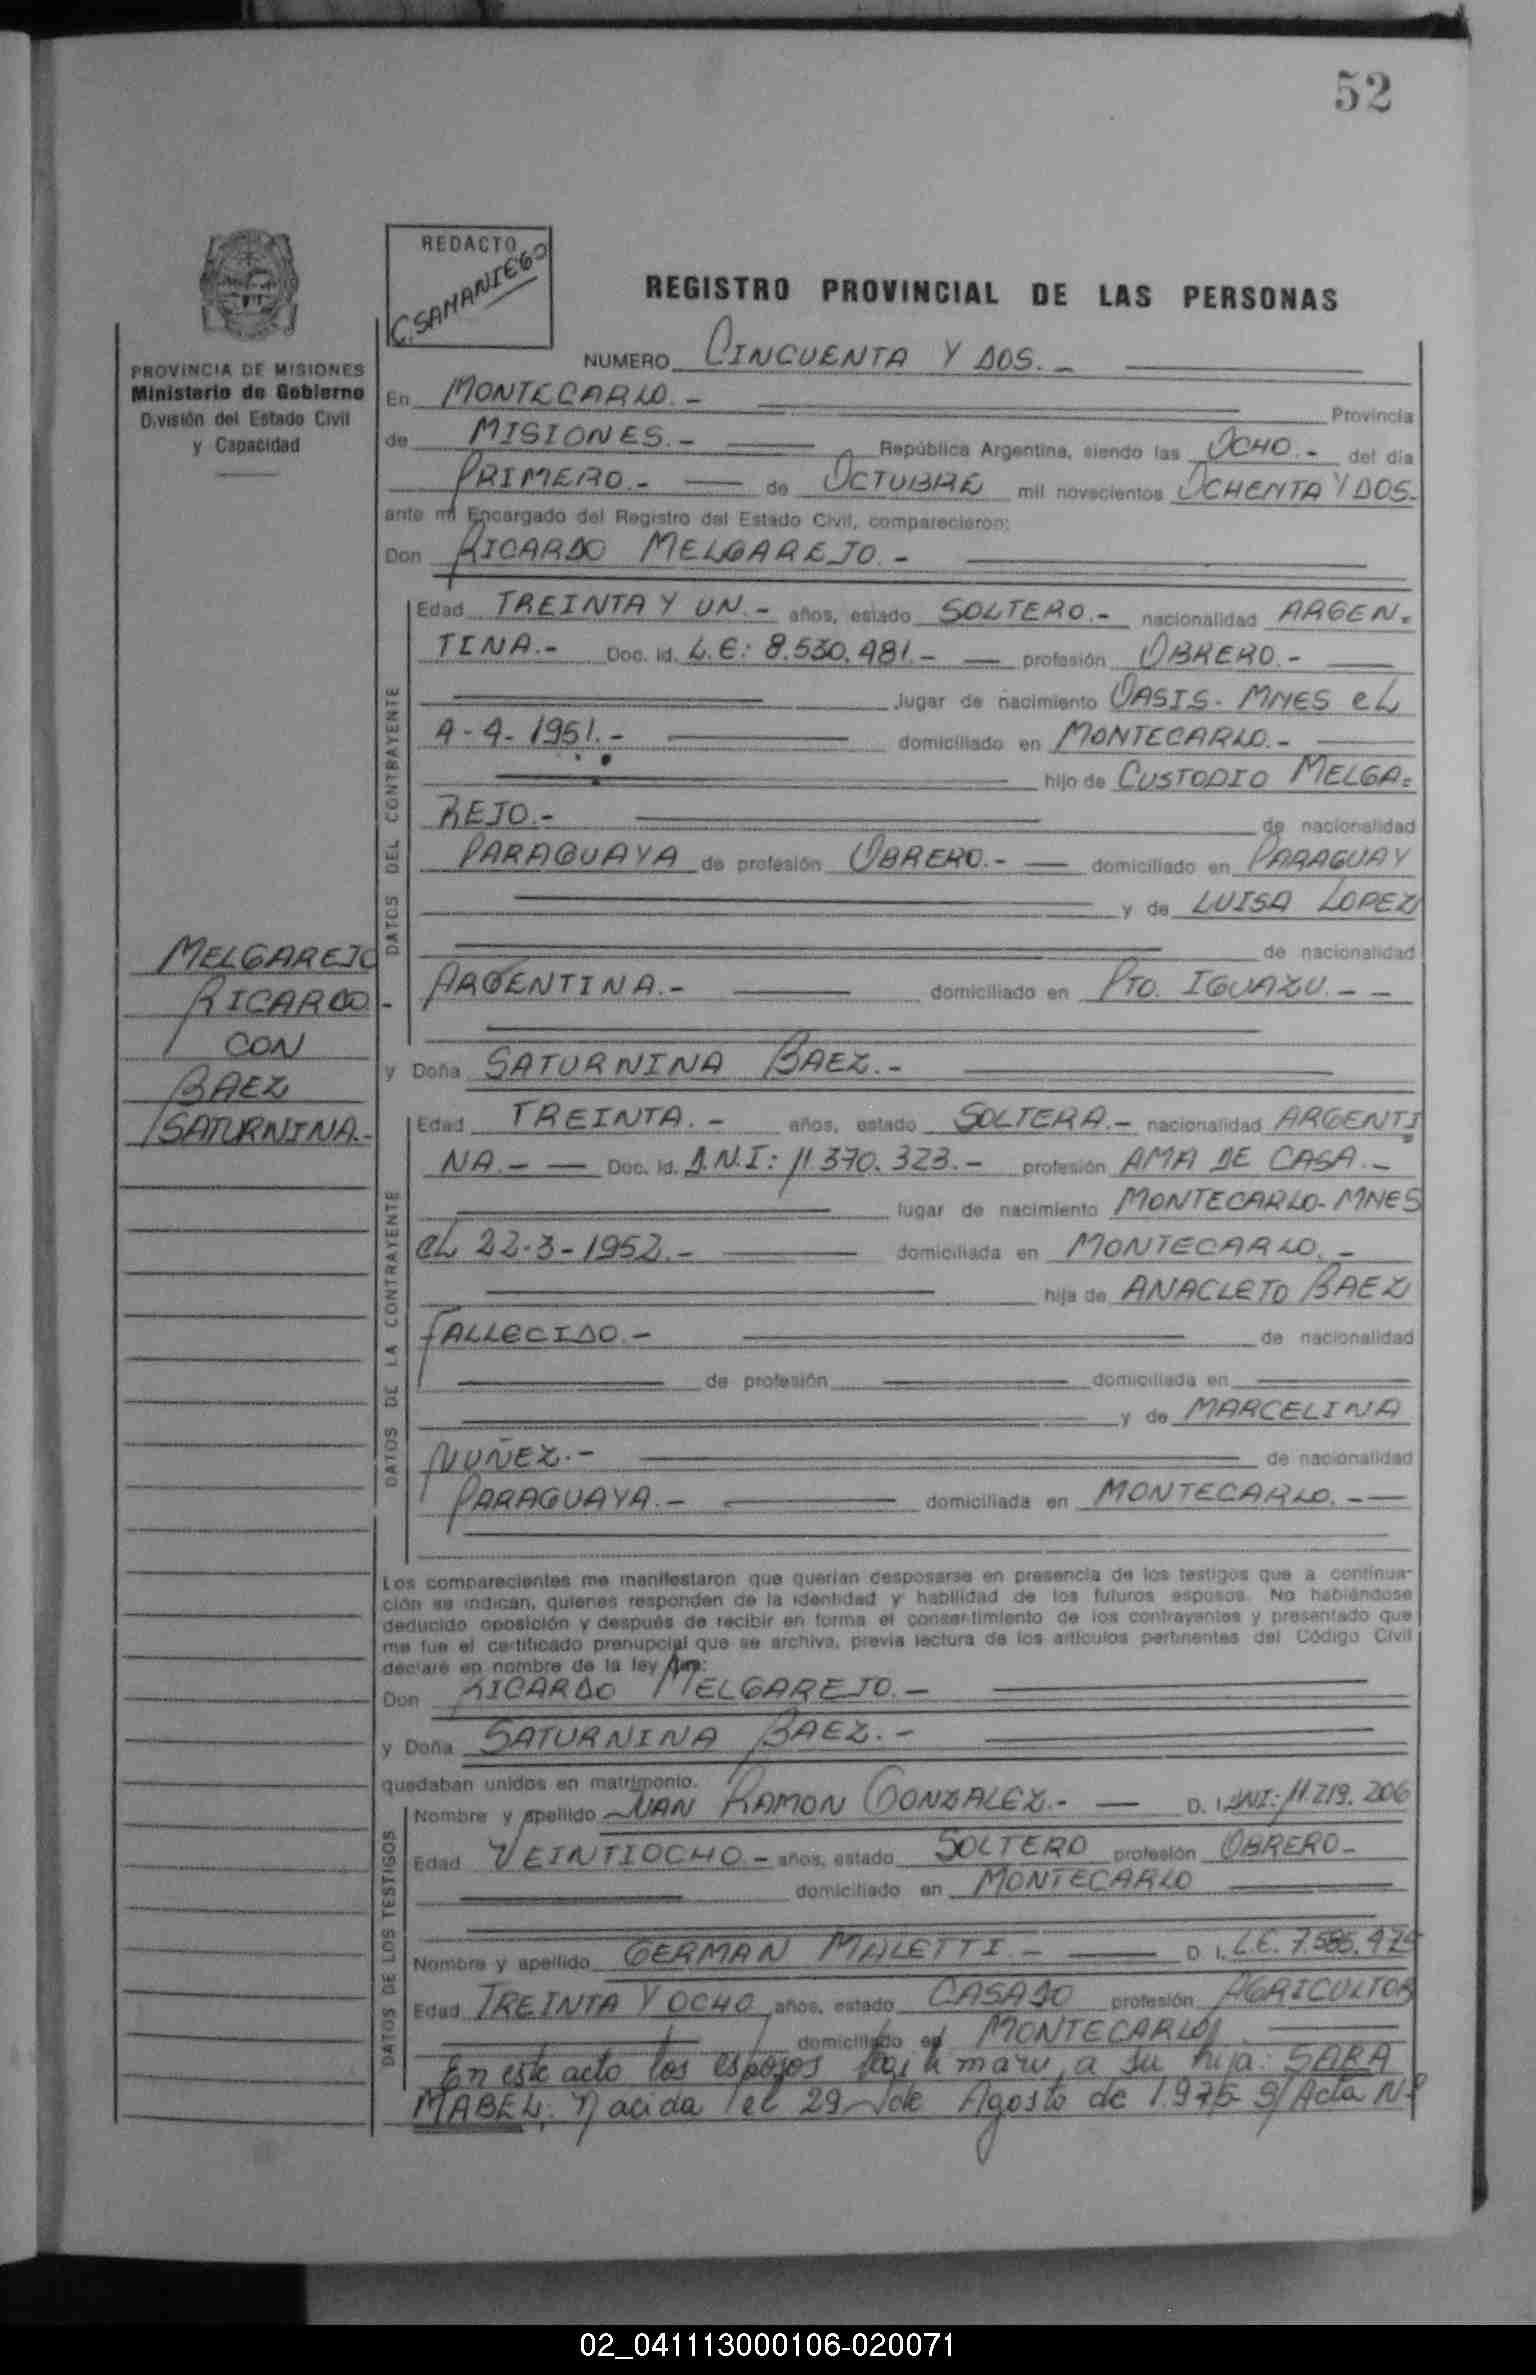 52
REDACTO
C. SAMANIEGO
REGISTRO PROVINCIAL DE LAS PERSONAS
PROVINCIA DE MISIONES
Ministerio de Gobierno
División del Estado Civil
y Capacidad
NUMERO CINCUENTA Y DOS.-
En MONTECARLO.- Provincia
de MISIONES.- República Argentina, siendo las OCHO.- del día
PRIMERO.- de OCTUBRE mil novecientos OCHENTA Y DOS.-
ante mí Encargado del Registro del Estado Civil, comparecieron:
Don RICARDO MELGAREJO.-
DATOS DEL CONTRAYENTE
Edad TREINTA Y UN.- años, estado SOLTERO.- nacionalidad ARGEN-
TINA.- Doc. Id. L.E: 8.530.481.- profesión OBRERO.-
lugar de nacimiento OASIS- MNES EL
4-4-1951.- domiciliado en MONTECARLO.-
hijo de CUSTODIO MELGA-
REJO.- de nacionalidad
PARAGUAYA de profesión OBRERO.- domiciliado en PARAGUAY
y de LUISA LOPEZ
de nacionalidad
ARGENTINA.- domiciliado en PTO. IGUAZU.--
MELGAREJO
RICARDO.-
CON
BAEZ
SATURNINA.-
y Doña SATURNINA BAEZ.-
DATOS DE LA CONTRAYENTE
Edad TREINTA.- años, estado SOLTERA.- nacionalidad ARGENTI
NA.- Doc. Id. D.N.I: 11.370.323.- profesión AMA DE CASA.-
lugar de nacimiento MONTECARLO-MNES
EL 22-3-1952.- domiciliada en MONTECARLO.-
hija de ANACLETO BAEZ
FALLECIDO.- de nacionalidad
de profesión domiciliada en
y de MARCELINA
NUÑEZ.- de nacionalidad
PARAGUAYA.- domiciliada en MONTECARLO.-
Los comparecientes me manifestaron que querían desposarse en presencia de los testigos que a continua-
ción se indican, quienes responden de la identidad y habilidad de los futuros esposos. No habiéndose
deducido oposición y después de recibir en forma el consentimiento de los contrayentes y presentado que
me fue el certificado prenupcial que se archiva, previa lectura de los artículos pertinentes del Código Civil
declaré en nombre de la ley que:
Don RICARDO MELGAREJO.-
y Doña SATURNINA BAEZ.-
quedaban unidos en matrimonio.
DATOS DE LOS TESTIGOS
Nombre y apellido JUAN RAMON GONZALEZ.- D. I. DNI: 11.219.206
Edad VEINTIOCHO.- años, estado SOLTERO profesión OBRERO-
domiciliado en MONTECARLO
Nombre y apellido GERMAN MALETTI.- D. I. L.E. 7.585.
Edad TREINTA Y OCHO años, estado CASADO profesión AGRICULTOR
domiciliado en MONTECARLO
En este acto los esposos a su hija: SARA
MABEL. Nacida el 29 de Agosto de 1.975 S/ Acta Nº
02_041113000106-020071